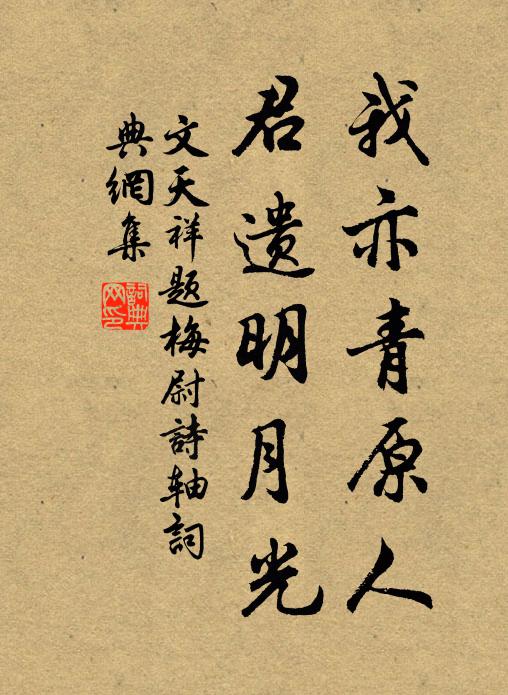 我亦青原人
君遗明月光
文天祥题梅尉詩轴詞
典網集
詞典
网印